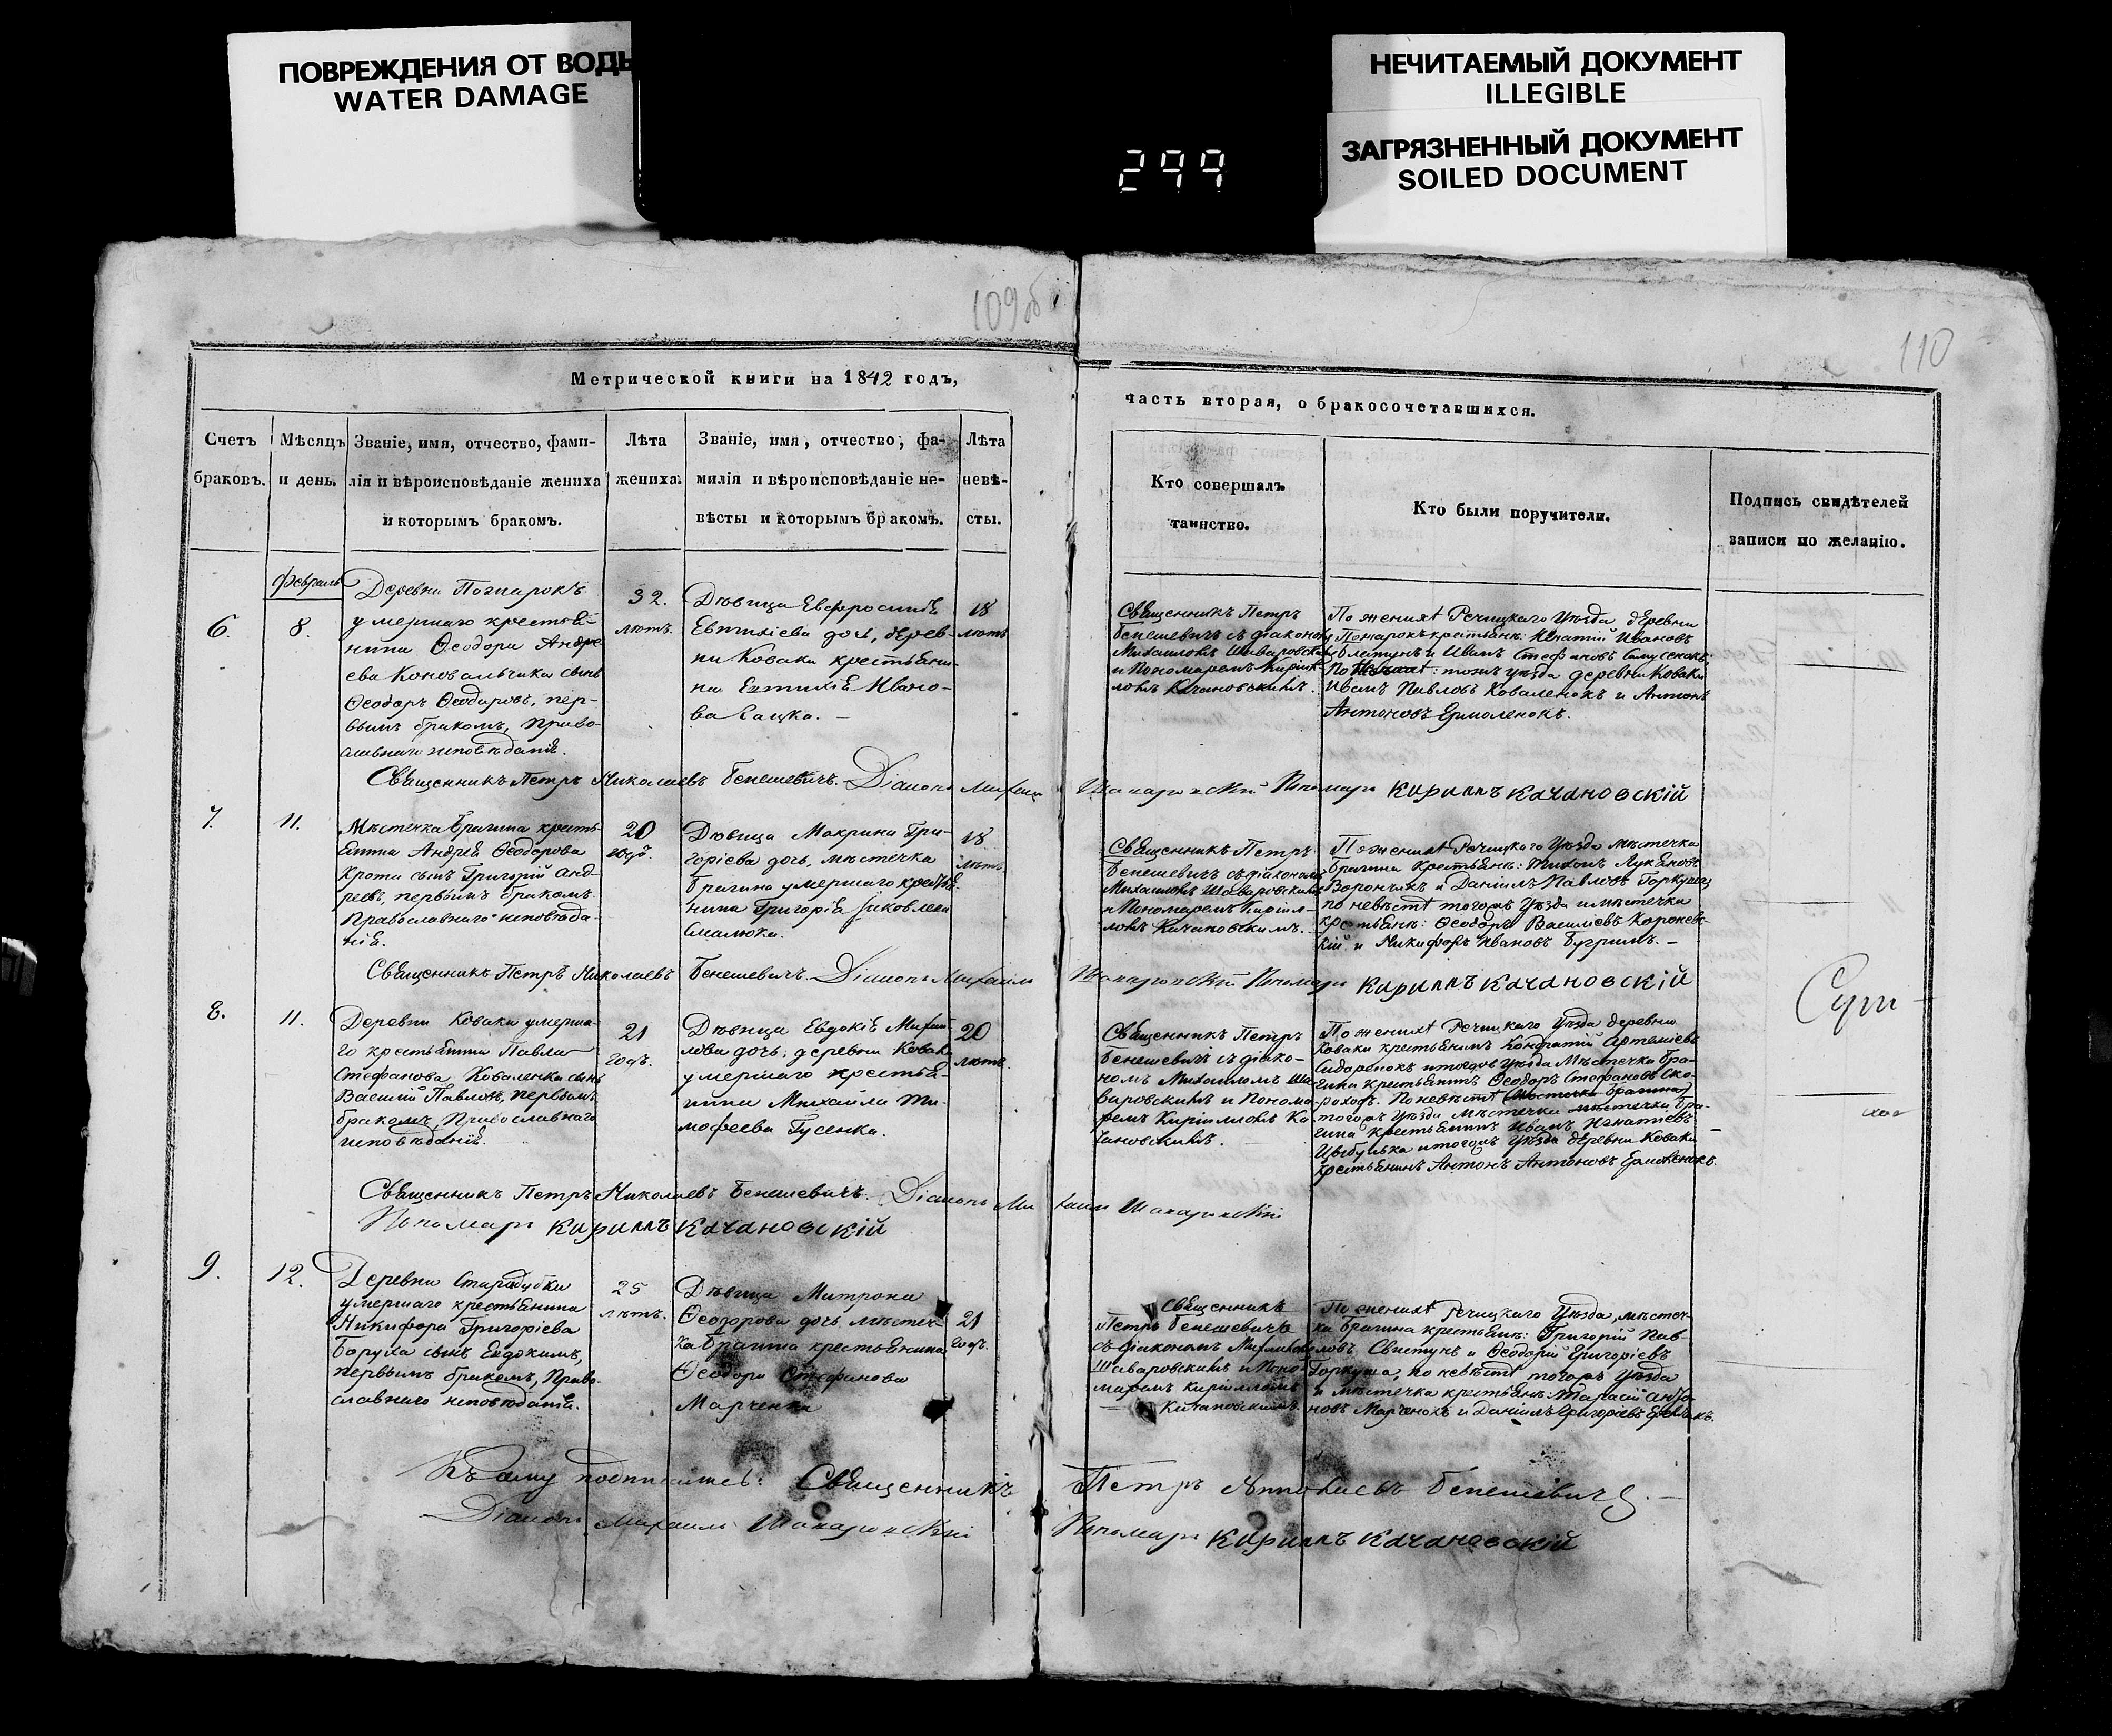 ПОВРЕЖДЕНИЯ ОТ ВОДЫ
WATER DAMAGE
НЕЧИТАЕМЫЙ ДОКУМЕНТ
ILLEGIBLE
ЗАГРЯЗНЕННЫЙ ДОКУМЕНТ
SOILED DOCUMENT
299
109об
110
Метрической книги на 1842 годъ,
часть вторая, о бракосочетавшихся.
Счетъ
браковъ.
Мѣсяцъ
и день.
Званіе, имя, отчество, фами-
лія и вѣроисповѣданіе жениха
и которымъ бракомъ.
Лѣта
жениха.
Званіе, имя, отчество, фа-
милія и вѣроисповѣданіе не-
вѣсты и которымъ бракомъ.
Лѣта
невѣ-
сты.
Кто совершалъ
таинство.
Кто были поручители.
Подпись свидѣтелей
записи по желанію.
февраль
6.
8.
Деревни Пожарокъ
умершаго крестья-
нина Ѳеодора Андре
ева Коновальчика сынъ
Ѳеодоръ Ѳеодоровъ, пер-
вымъ бракомъ, Право-
славнаго исповѣданія.
32.
лѣтъ.
Дѣвица Евфросинія
Евтихіева дочь, дерев-
ни Коваки крестьяни-
на Евтихія Ивано-
ва Кацка.
18
лѣтъ
Священникъ Петръ
Бенешевичъ съ діакономъ
Михаиломъ Шаваровскимъ
и Пономаремъ Кирил-
ломъ Качановскимъ.
По женихѣ Речицкаго Уѣзда деревни
Пожарокъ крестьяне: Игнатій Ивановъ
и Иванъ Стефановъ
По невѣстѣ: тогожъ уѣзда деревни Коваки
Иванъ Павловъ Коваленокъ и Антонъ
Антоновъ Ермоленокъ.
Священникъ Петръ Николаевъ Бенешевичъ. Діаконъ Михаилъ Шаваровскій Пономарь Кириллъ Качановскій
7.
11.
Мѣстечка Брагина кресть-
янина Андрея Ѳеодорова
Крота сынъ Григорій Анд-
реевъ, первымъ бракомъ.
Православнаго исповѣда-
нія.
20
годъ.
Дѣвица Макрина Гри-
горіева дочь, мѣстечка
Брагина умершаго крестья-
нина Григорія Яковлева
Смалюка.
18
лѣтъ
Священникъ Петръ
Бенешевичъ съ діакономъ
Михаиломъ Шаваровскимъ
и Пономаремъ Кирил-
ломъ Качановскимъ.
По женихѣ Речицкаго Уѣзда мѣстечка
Брагина Крестьяне: Тихонъ Лукьяновъ
и Даніилъ Павловъ Горкуша,
по невѣстѣ тогожъ Уѣзда и мѣстечка
крестьяне: Ѳеодоръ Василіевъ Короневс-
кій и Никифоръ Ивановъ Бугримъ.
Священникъ Петръ Николаевъ Бенешевичъ. Діаконъ Михаилъ Шаваровскій Пономарь Кириллъ Качановскій
8.
11.
Деревни Коваки умерша-
го крестьянина Павла
Стефанова Коваленка сынъ
Василій Павловъ, первымъ
бракомъ, Православнаго
исповѣданія.
21
годъ.
Дѣвица Евдокія Михаи-
лова дочь, деревни Коваки
умершаго крестья-
нина Михаила Ти-
мофеева Гусенка.
20
лѣтъ.
Священникъ Петръ
Бенешевичъ съ діако-
номъ Михаиломъ Ша-
варовскимъ и Понома-
ремъ Кирилломъ Ка-
чановскимъ.
По женихѣ Речицкаго Уѣзда деревни
Коваки крестьянинъ Кондратій Артеміевъ
Сидоренокъ и тогожъ уѣзда Мѣстечка Бра-
гина крестьянинъ Ѳеодоръ Стефановъ Ско-
роходъ. По невѣстѣ (мѣстечка Брагина)
тогожъ Уѣзда мѣстечка мѣстечка Бра-
гина крестьянинъ Иванъ Игнатіевъ
Цыбулька и тогожъ уѣзда деревни Коваки
крестьянинъ Антонъ Антоновъ Ермоленокъ.
Священникъ Петръ Николаевъ Бенешевичъ. Діаконъ Михаилъ Шаваровскій
Пономарь Кириллъ Качановскій
9.
12.
Деревни Старадубки
умершаго крестьянина
Никифора Григоріева
Барула сынъ Евдокимъ,
первымъ бракомъ, Право-
славнаго исповѣданія.
25
лѣтъ.
Дѣвица Митрона
Ѳеодорова дочь мѣстеч-
ка Брагина крестьянина
Ѳеодора Стефанова
Марченка
21
годъ.
Священникъ
Петръ Бенешевичъ
съ діакономъ Михаиломъ
Шаваровскимъ и Поно-
маремъ Кирилломъ
Качановскимъ.
По женихѣ Речицкаго Уѣзда, мѣстеч-
ка Брагина крестьяне: Григорій Пав-
ловъ Свистунъ и Ѳеодоръ Григоріевъ
Горкуша, по невѣстѣ тогожъ уѣзда
и мѣстечка крестьяне: Тарасій Анто-
новъ Марченокъ и Даніилъ Григоріевъ
Къ сему подписались: Священникъ Петръ Николаевъ Бенешевичъ.
Діаконъ Михаилъ Шаваровскій Пономарь Кириллъ Качановскій